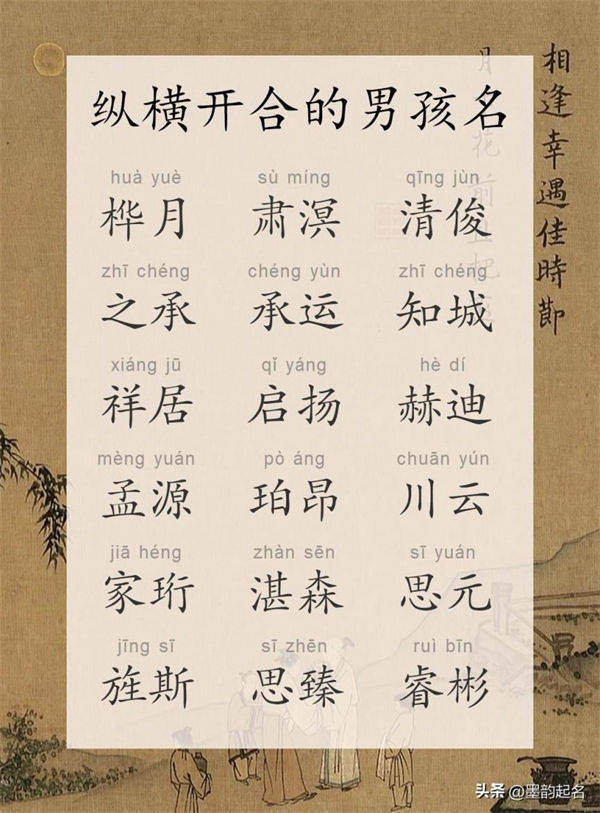 纵横开合的男孩名
huà yuè sù míng qīng jùn
桦月 肃溟 清俊
zhī chéng chéng yùn zhī chéng
之承 承运 知城
xiáng jū qǐ yáng hè dí
祥居 启扬 赫迪
mèng yuán pò áng chuān yún
孟源 珀昂 川云
jiā héng zhàn sēn sī yuán
家珩 湛森 思元
jīng sī sī zhēn ruì bīn
旌斯 思臻 睿彬
相逢幸遇佳時節
月 花前
头条 @墨韵起名